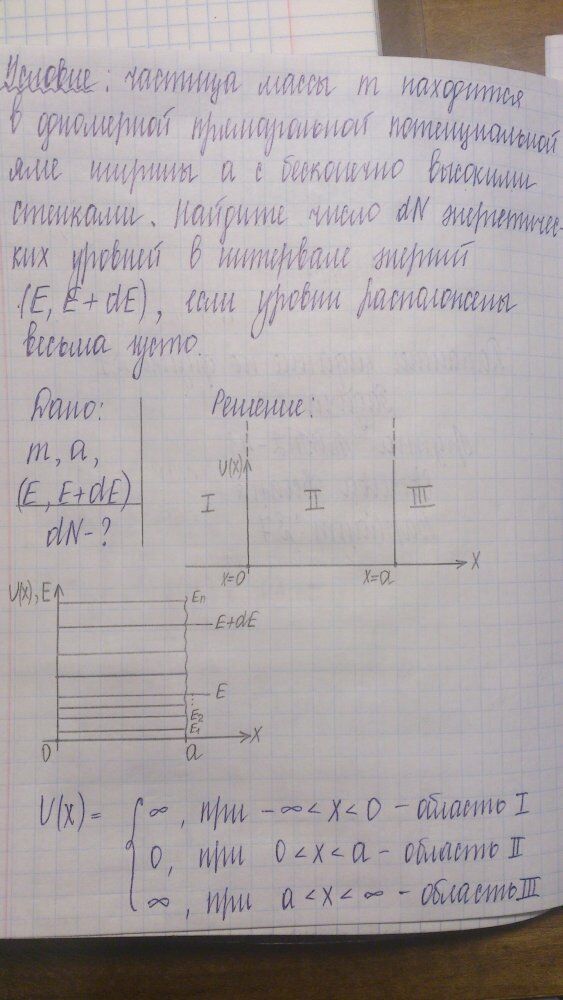 Условие: частица массы m находится
в одномерной прямоугольной потенциальной
яме ширины a с бесконечно высокими
стенками. Найдите число dN энергетичес-
ких уровней в интервале энергий
(E, E+dE), если уровни расположены
весьма густо.
Дано:
m, a,
(E, E+dE)
dN-?
Решение:
U(x)
I II III
x=0 x=a x
U(x), E
En
E+dE
E
E2
E1
0 a x
U(x)= { ∞, при -∞<x<0 - область I
0, при 0<x<a - область II
∞, при a<x<∞ - область III